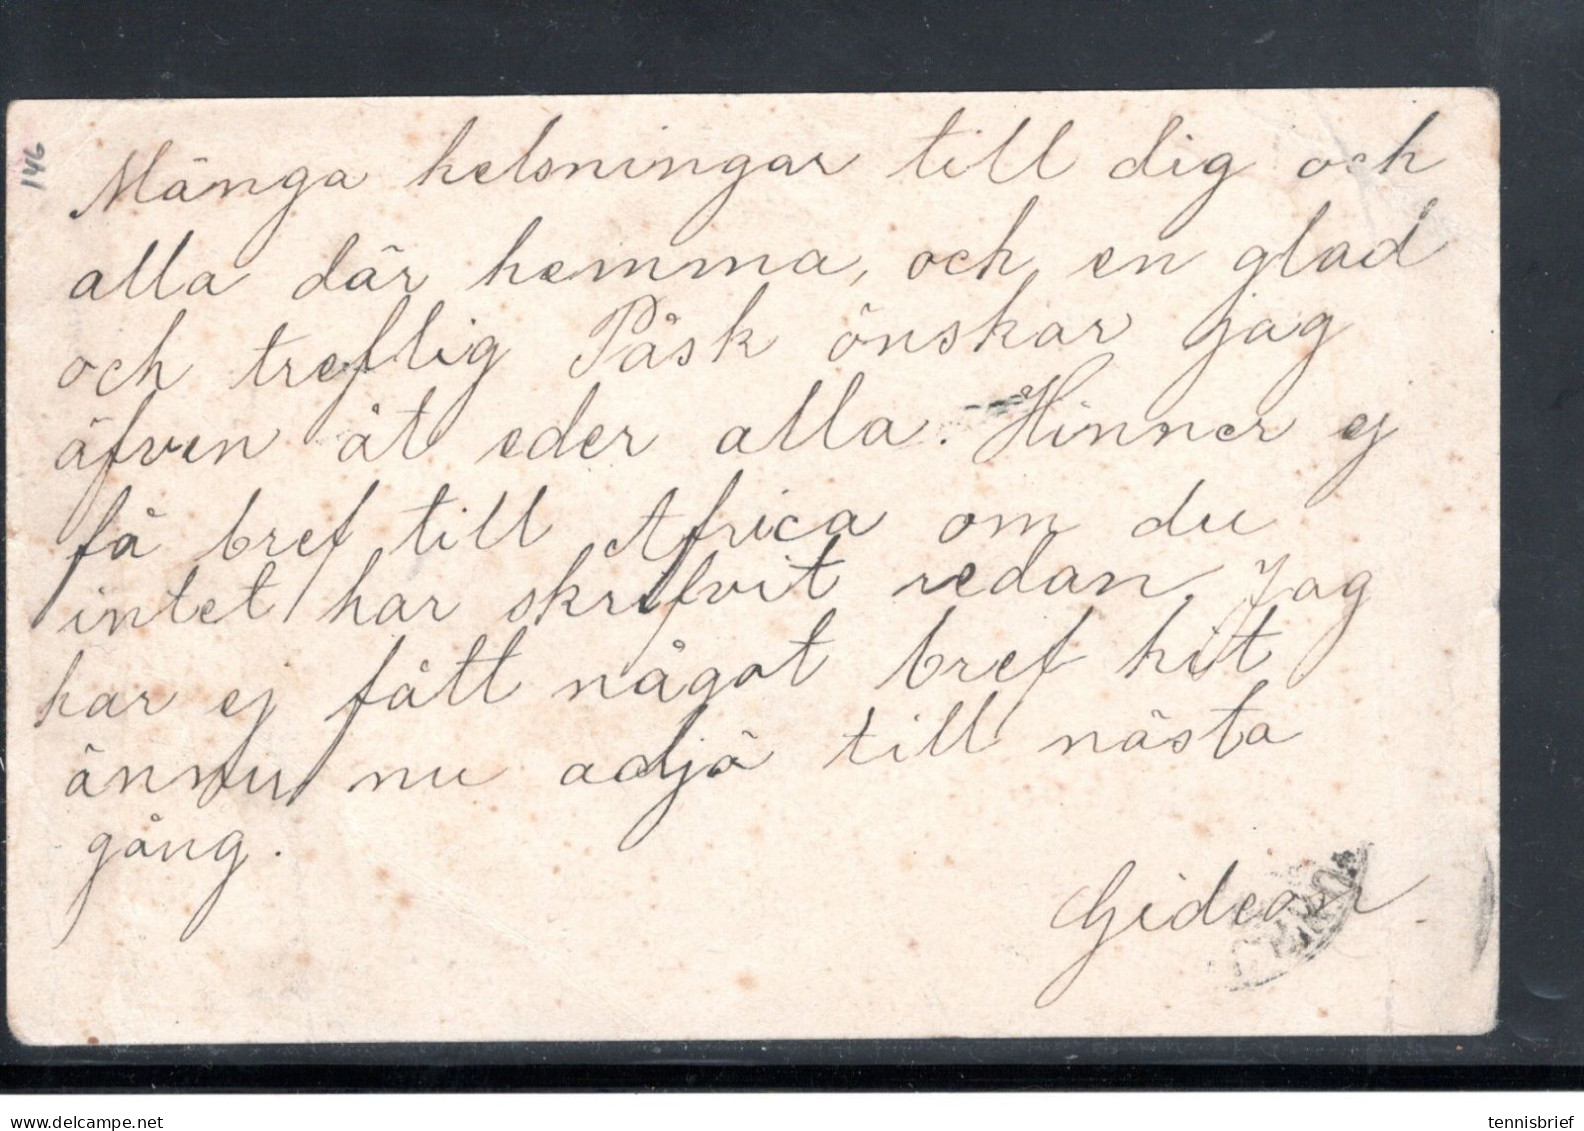 146
Många helsningar till dig och
alla där hemma, och en glad
och treflig Påsk önskar jag
äfven åt eder alla. Hinner ej
få bref till Africa om du
intet har skrifvit redan. Jag
har ej fått något bref hit
ännu, nu adjö till nästa
gång.
Gideon.
www.delcampe.net
tennisbrief